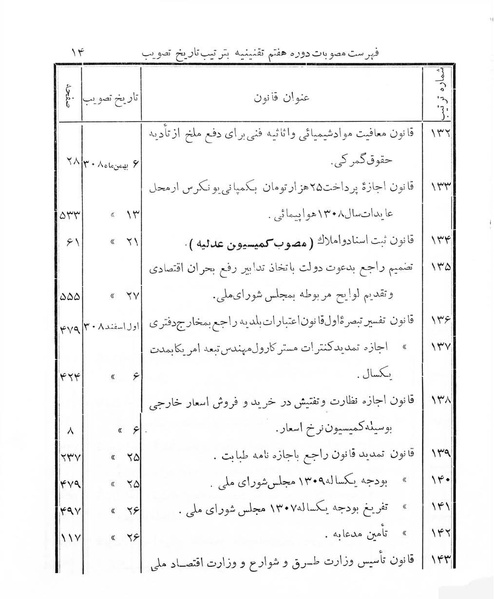 فهرست مصوبات دوره هفتم تقنینیه بترتیب تاریخ تصویب ۱۴
شماره ترتیب عنوان قانون تاریخ تصویب صفحه
۱۳۲ قانون معافیت مواد شیمیائی و اثاثیه فنی برای دفع ملخ از تأدیه
حقوق گمرکی. ۶ بهمن ماه ۳۰۸ ۲۸
۱۳۳ قانون اجازهٔ پرداخت ۲۵ هزار تومان بکمپانی یونکرس از محل
عایدات سال ۱۳۰۸ هواپیمائی. ۱۳ » ۵۳۳
۱۳۴ قانون ثبت اسناد و املاك (مصوب کمیسیون عدلیه). ۲۱ » ۶۱
۱۳۵ تضمیم راجع بدعوت دولت باتخاذ تدابیر رفع بحران اقتصادی
و تقدیم لوایح مربوطه بمجلس شورای ملی. ۲۷ » ۵۵۵
۱۳۶ قانون تفسیر تبصرهٔ اول قانون اعتبارات بلدیه راجع بمخارج دفتری اول اسفند ۳۰۸ ۴۷۹
۱۳۷ » اجازه تمدید کنترات مستر کارول مهندس تبعه امریکا بمدت
یکسال. ۶ » ۴۲۴
۱۳۸ قانون اجازه نظارت و تفتیش در خرید و فروش اسعار خارجی
بوسیله کمیسیون نرخ اسعار. ۶ » ۸
۱۳۹ قانون تمدید قانون راجع باجازه نامه طبابت. ۲۵ » ۲۳۷
۱۴۰ » بودجه یکساله ۱۳۰۹ مجلس شورای ملی. ۲۵ » ۴۷۹
۱۴۱ » تفریغ بودجه یکساله ۱۳۰۷ مجلس شورای ملی. ۲۶ » ۴۹۷
۱۴۲ » تأمین مدعابه. ۲۶ » ۱۱۷
۱۴۳ قانون تأسیس وزارت طرق و شوارع و وزارت اقتصاد ملی